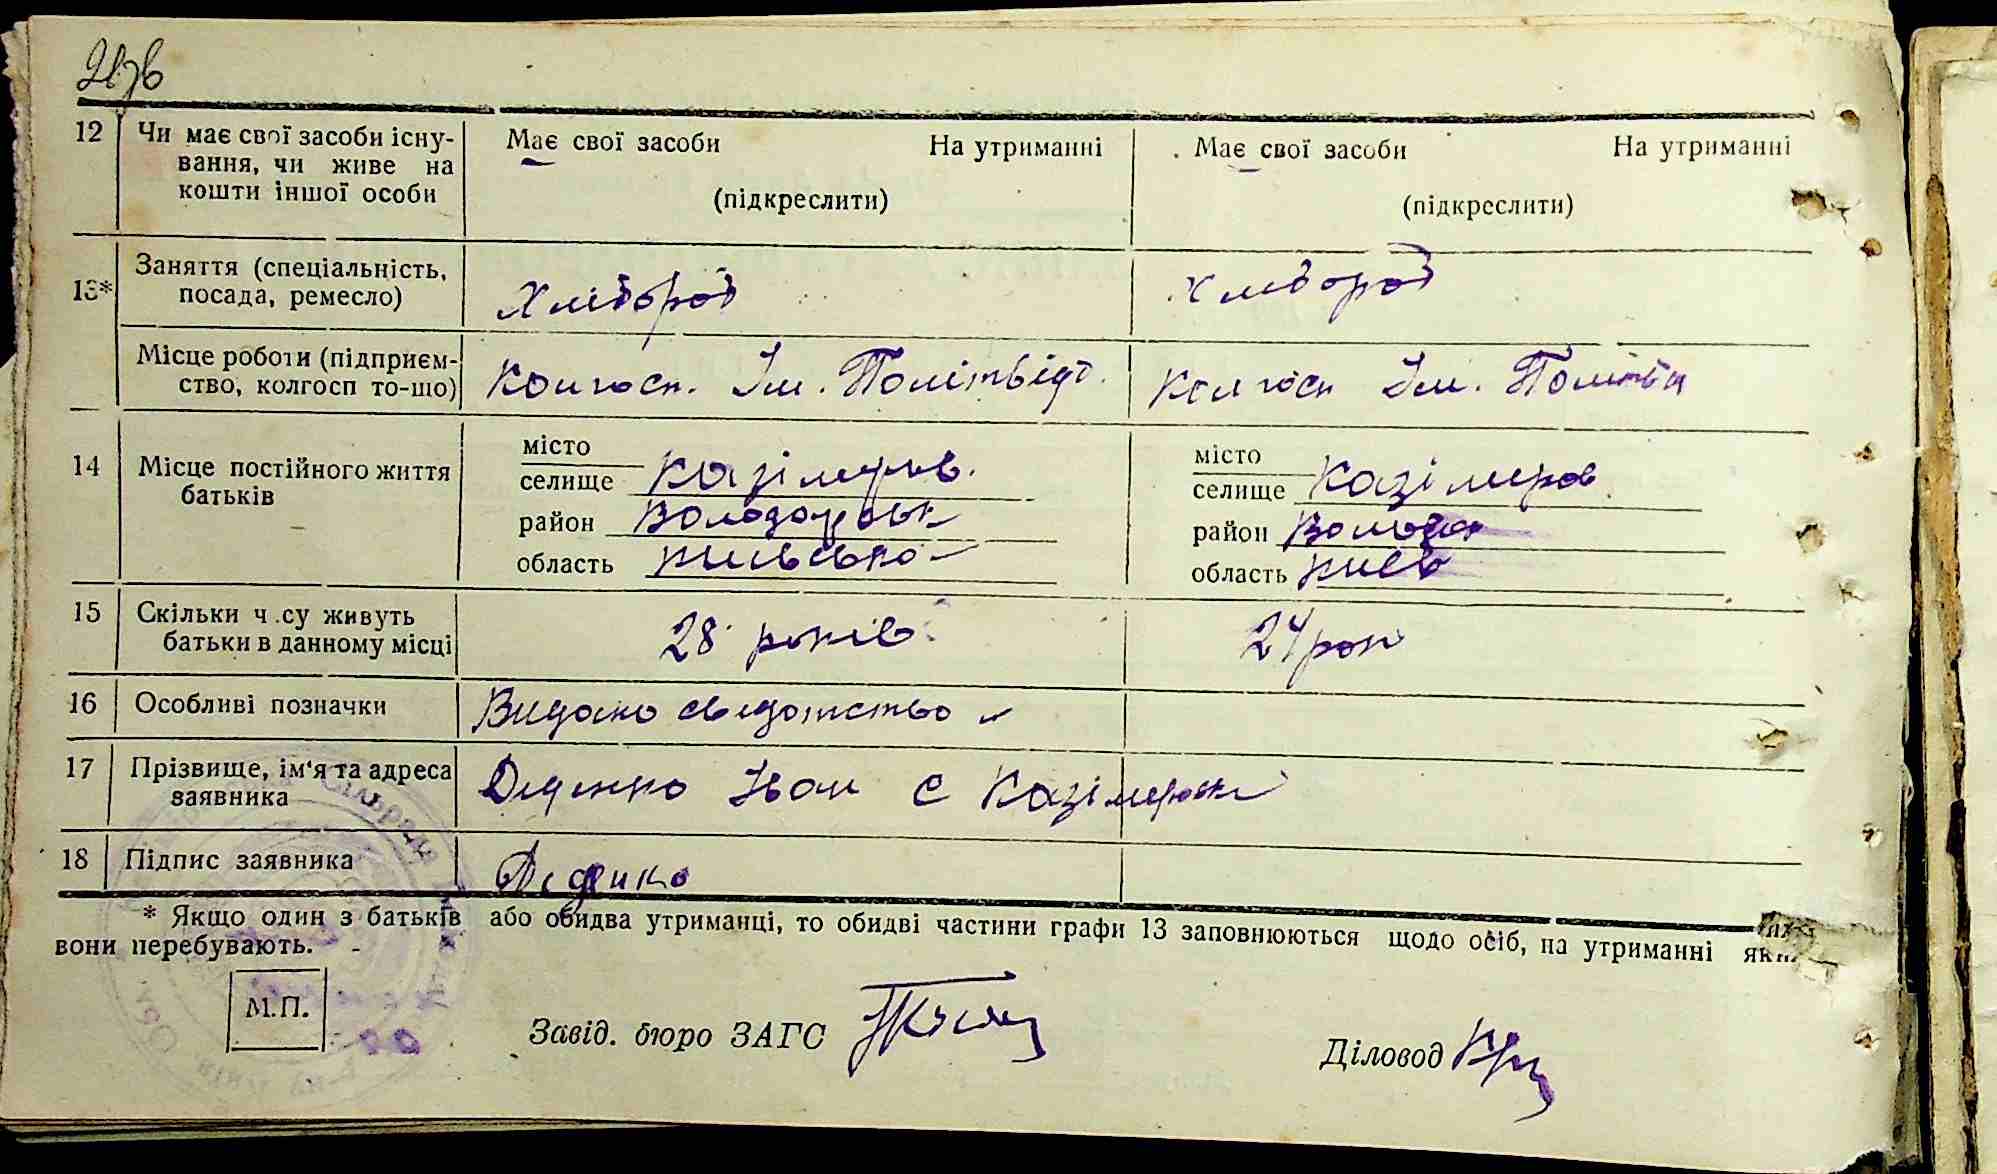 12 Чи має свої засоби існу- Має свої засоби На утриманні Має свої засоби На утриманні
вання, чи живе на
кошти іншої особи (підкреслити) (підкреслити)
13* Заняття (спеціальність,
посада, ремесло) Хлібороб Хлібороб
Місце роботи (підприєм-
ство, колгосп то-що) Колгосп. Ім. Політвідд. Колгосп Ім. Політв
14 Місце постійного життя
батьків
місто місто
селище Казімирів. селище Казімиров
район Володарськ район Волод
область Київсько область Київ
15 Скільки ч.су живуть
батьки в данному місці 28 років 24 рок
16 Особливі позначки Видано свідотство
17 Прізвище, ім'я та адреса
заявника Діденко Іван с Казімировки
18 Підпис заявника Діденко
* Якщо один з батьків або обидва утриманці, то обидві частини графи 13 заповнюються щодо осіб, на утриманні яких
вони перебувають.
М.П.
Завід. бюро ЗАГС
Діловод